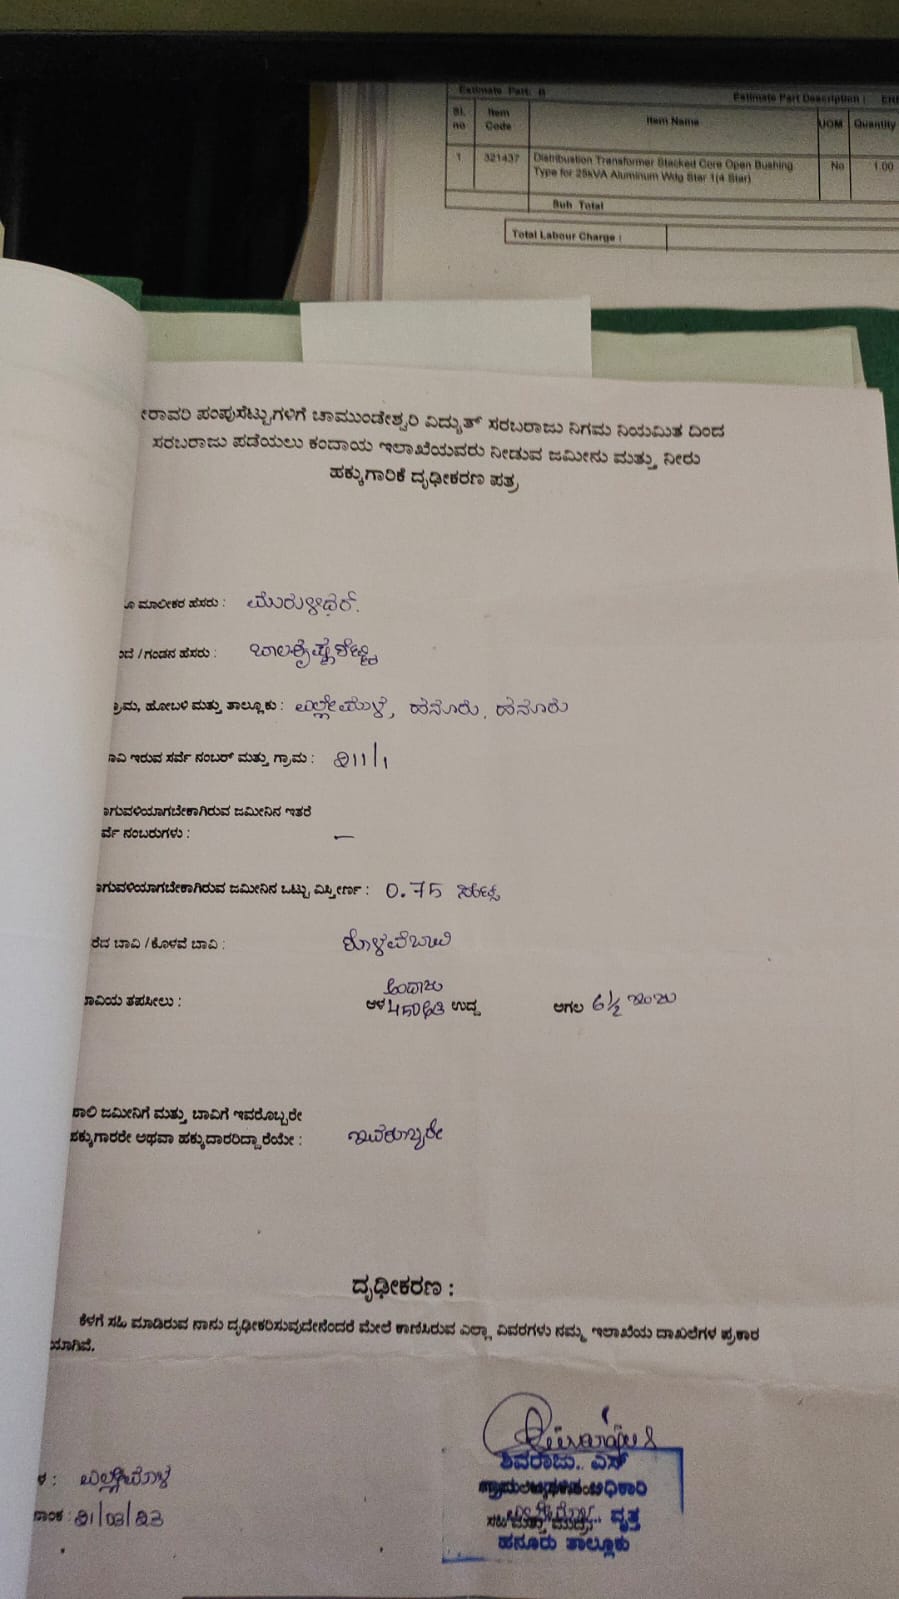 Estimate Part: B Estimate Part Description :
Sl. no Item Code Item Name UOM Quantity
1 321437 Distribustion Transformer Stacked Core Open Bushing Type for 25kVA Aluminum Wdg Star 1(4 Star) No 1.00
Sub Total
Total Labour Charge :
ೀರಾವರಿ ಪಂಪುಸೆಟ್ಟುಗಳಿಗೆ ಚಾಮುಂಡೇಶ್ವರಿ ವಿದ್ಯುತ್ ಸರಬರಾಜು ನಿಗಮ ನಿಯಮಿತ ದಿಂದ
ಸರಬರಾಜು ಪಡೆಯಲು ಕಂದಾಯ ಇಲಾಖೆಯವರು ನೀಡುವ ಜಮೀನು ಮತ್ತು ನೀರು
ಹಕ್ಕುಗಾರಿಕೆ ದೃಢೀಕರಣ ಪತ್ರ
ಮಾಲೀಕರ ಹೆಸರು : ಮುರುಳೀಧರ್.
ಂದೆ / ಗಂಡನ ಹೆಸರು : ಬಾಲಕೃಷ್ಣಶೆಟ್ಟಿ
ರಾಮ, ಹೋಬಳಿ ಮತ್ತು ತಾಲ್ಲೂಕು : ಹನೂರು, ಹನೂರು
ಾವಿ ಇರುವ ಸರ್ವೆ ನಂಬರ್ ಮತ್ತು ಗ್ರಾಮ : 211/1
ಾಗುವಳಿಯಾಗಬೇಕಾಗಿರುವ ಜಮೀನಿನ ಇತರೆ
ರ್ವೆ ನಂಬರುಗಳು : —
ಾಗುವಳಿಯಾಗಬೇಕಾಗಿರುವ ಜಮೀನಿನ ಒಟ್ಟು ವಿಸ್ತೀರ್ಣ : 0.75
ರೆದ ಬಾವಿ / ಕೊಳವೆ ಬಾವಿ : ಕೊಳವೆಬಾವಿ
ಅಂದಾಜು
ಾವಿಯ ತಪಸೀಲು : ಆಳ 450ಅಡಿ ಉದ್ದ ಅಗಲ 6½ ಇಂಚು
ಸಾಲಿ ಜಮೀನಿಗೆ ಮತ್ತು ಬಾವಿಗೆ ಇವರೊಬ್ಬರೇ
ಹಕ್ಕುಗಾರರೇ ಅಥವಾ ಹಕ್ಕುದಾರರಿದ್ದಾರೆಯೇ : ಇವರೊಬ್ಬರೇ
ದೃಢೀಕರಣ :
ಕೆಳಗೆ ಸಹಿ ಮಾಡಿರುವ ನಾನು ದೃಢೀಕರಿಸುವುದೇನೆಂದರೆ ಮೇಲೆ ಕಾಣಿಸಿರುವ ಎಲ್ಲಾ ವಿವರಗಳು ನಮ್ಮ ಇಲಾಖೆಯ ದಾಖಲೆಗಳ ಪ್ರಕಾರ
ಯಾಗಿವೆ.
ಶಿವರಾಜು.. ಎಸ್
ಸಹಿ ಮತ್ತು ಮುದ್ರೆ ವೃತ್ತ
ಹನೂರು ತಾಲ್ಲೂಕು
ಾಂಕ : 21/03/23